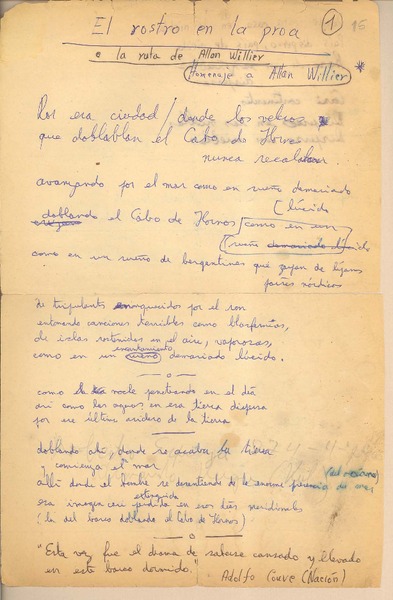 El rostro en la proa
1
16
o la ruta de Allan Willier
Homenaje a Allan Willier
Por esa ciudad / donde los veleros
que doblaban el Cabo de Hornos
nunca recalaban
avanzando por el mar como en sueño demasiado
lúcido
doblando el Cabo de Hornos como en un
sueño demasiado lúcido
como en un sueño de bergantines que zarpan de lejanos
países nórdicos
de tripulantes enronquecidos por el ron
entonando canciones terribles como blasfemias,
de islas sostenidas en el aire, vaporosas,
encantamiento
como en un sueño demasiado lúcido.
como la noche penetrando en el día
así como las aguas en esa tierra dispersa
por ese último asidero de la tierra
doblando ahí, donde se acaba la tierra
y comienza el mar
allí donde el hombre se desentiende de la enorme presencia de
extinguida
esa imagen casi perdida en esos días meridionales
(la del barco doblando el Cabo de Hornos)
"Esta vez fue el drama de saberse cansado y llevado
en este barco dormido."
Adolfo Couve (Nación)